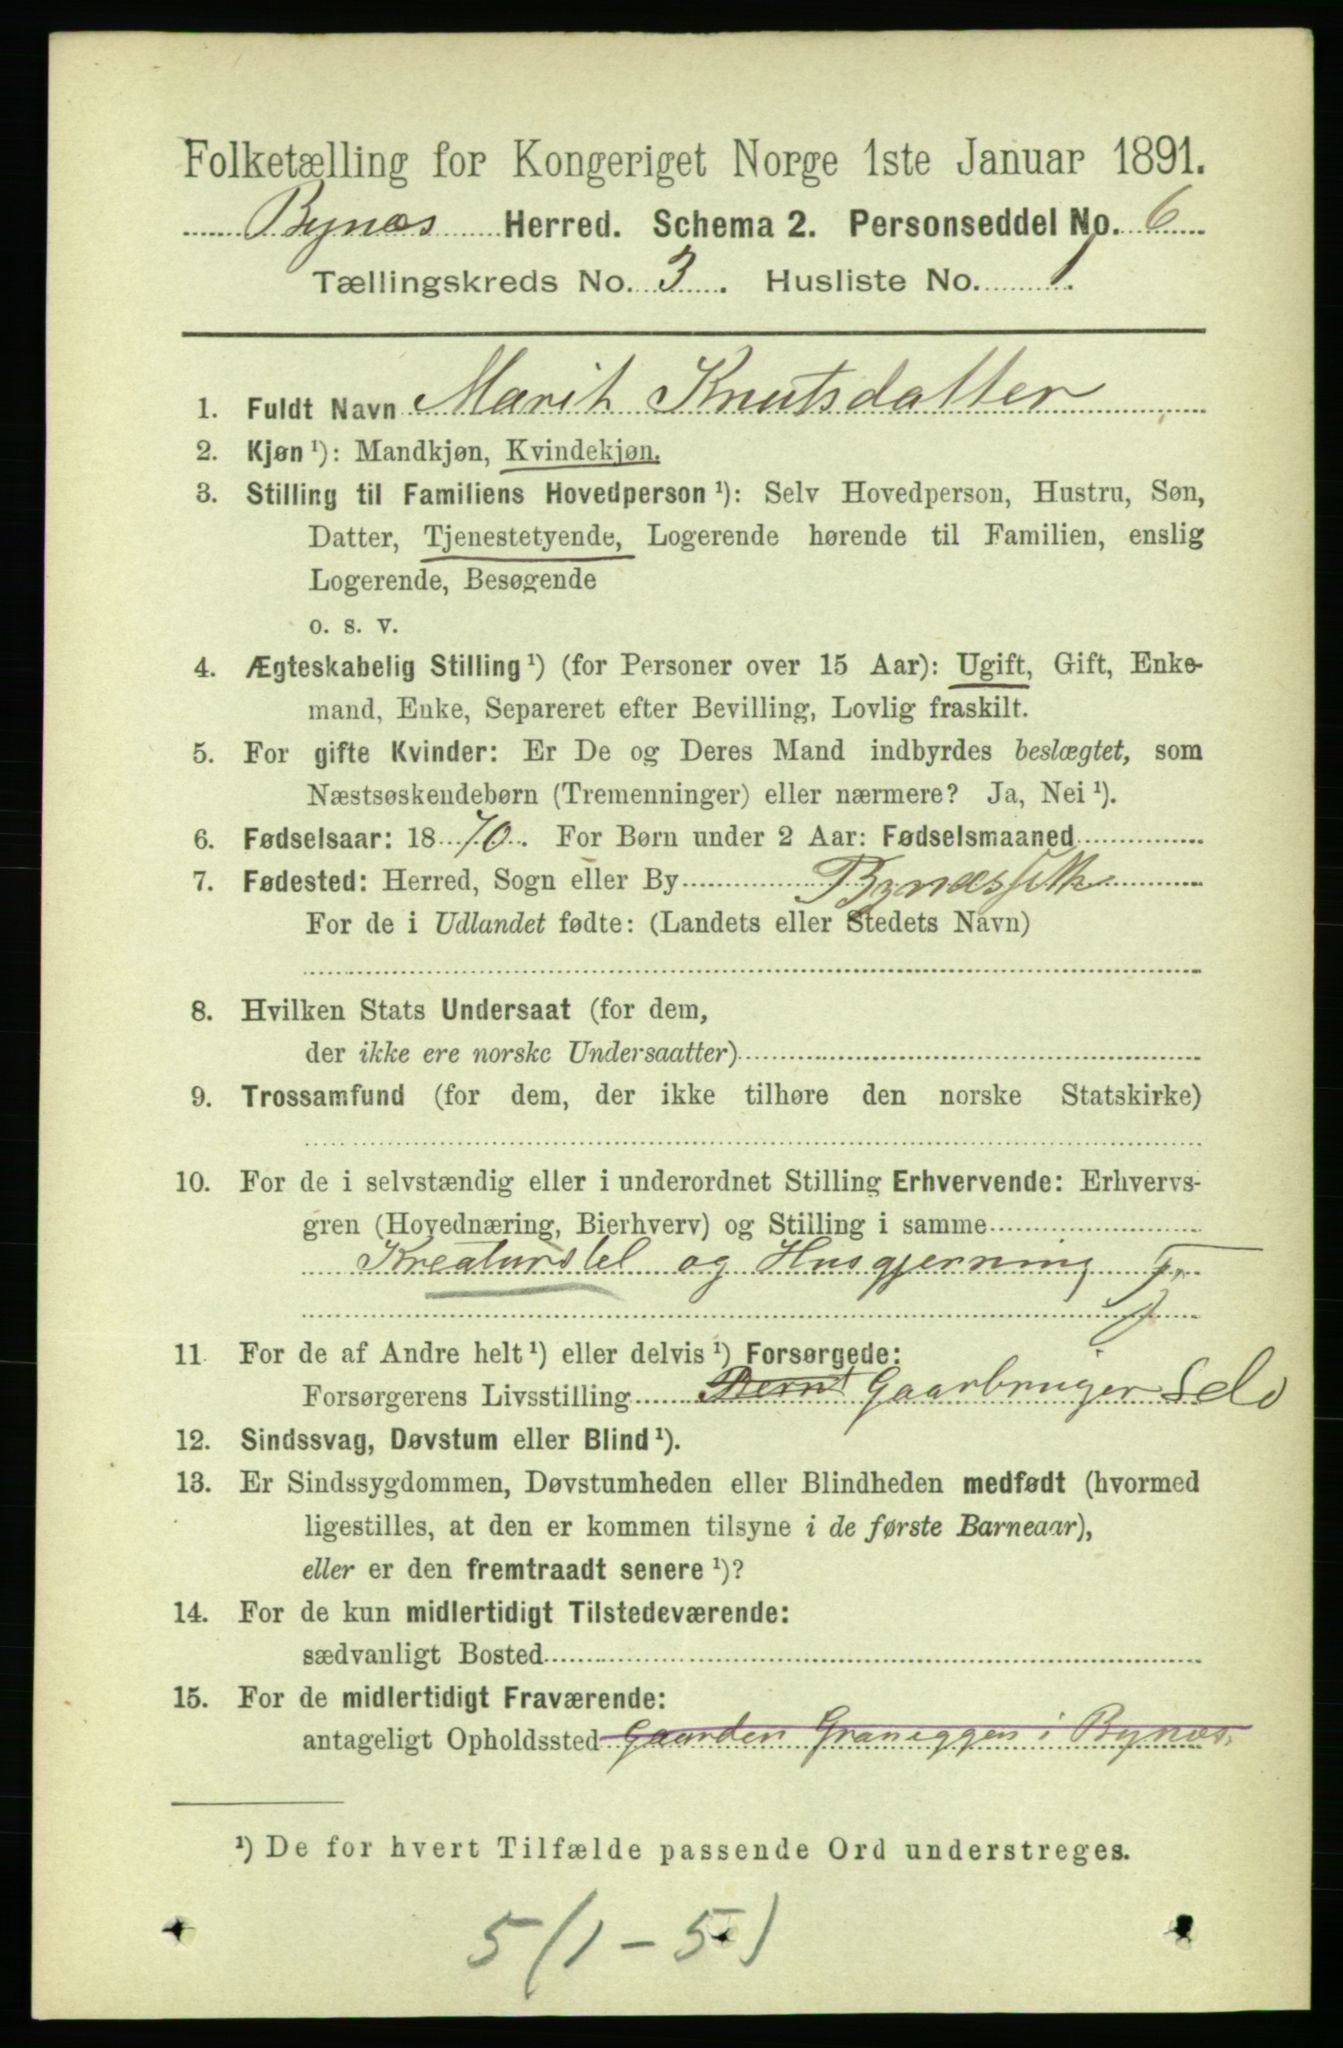 Folketælling for Kongeriget Norge 1ste Januar 1891.
Bynæs Herred. Schema 2. Personseddel No. 6
Tællingskreds No. 3. Husliste No. 1.
1. Fuldt Navn Marit Knutsdatter
2. Kjøn ¹): Mandkjøn, Kvindekjøn.
3. Stilling til Familiens Hovedperson ¹): Selv Hovedperson, Hustru, Søn,
Datter, Tjenestetyende, Logerende hørende til Familien, enslig
Logerende, Besøgende
o. s. v.
4. Ægteskabelig Stilling ¹) (for Personer over 15 Aar): Ugift, Gift, Enke-
mand, Enke, Separeret efter Bevilling, Lovlig fraskilt.
5. For gifte Kvinder: Er De og Deres Mand indbyrdes beslægtet, som
Næstsøskendebørn (Tremenninger) eller nærmere? Ja, Nei ¹).
6. Fødselsaar: 1870. For Børn under 2 Aar: Fødselsmaaned
7. Fødested: Herred, Sogn eller By Bynæsset
For de i Udlandet fødte: (Landets eller Stedets Navn)
8. Hvilken Stats Undersaat (for dem,
der ikke ere norske Undersaatter)
9. Trossamfund (for dem, der ikke tilhøre den norske Statskirke)
10. For de i selvstændig eller i underordnet Stilling Erhvervende: Erhvervs-
gren (Hovednæring, Bierhverv) og Stilling i samme
Kreaturstel og Husgjerning
11. For de af Andre helt ¹) eller delvis ¹) Forsørgede:
Forsørgerens Livsstilling Bernt Gaarbruger Selv
12. Sindssvag, Døvstum eller Blind ¹).
13. Er Sindssygdommen, Døvstumheden eller Blindheden medfødt (hvormed
ligestilles, at den er kommen tilsyne i de første Barneaar),
eller er den fremtraadt senere ¹)?
14. For de kun midlertidigt Tilstedeværende:
sædvanligt Bosted
15. For de midlertidigt Fraværende:
antageligt Opholdssted Gaarden Graneggen i Bynæs.
¹) De for hvert Tilfælde passende Ord understreges.
5 (1 - 5)